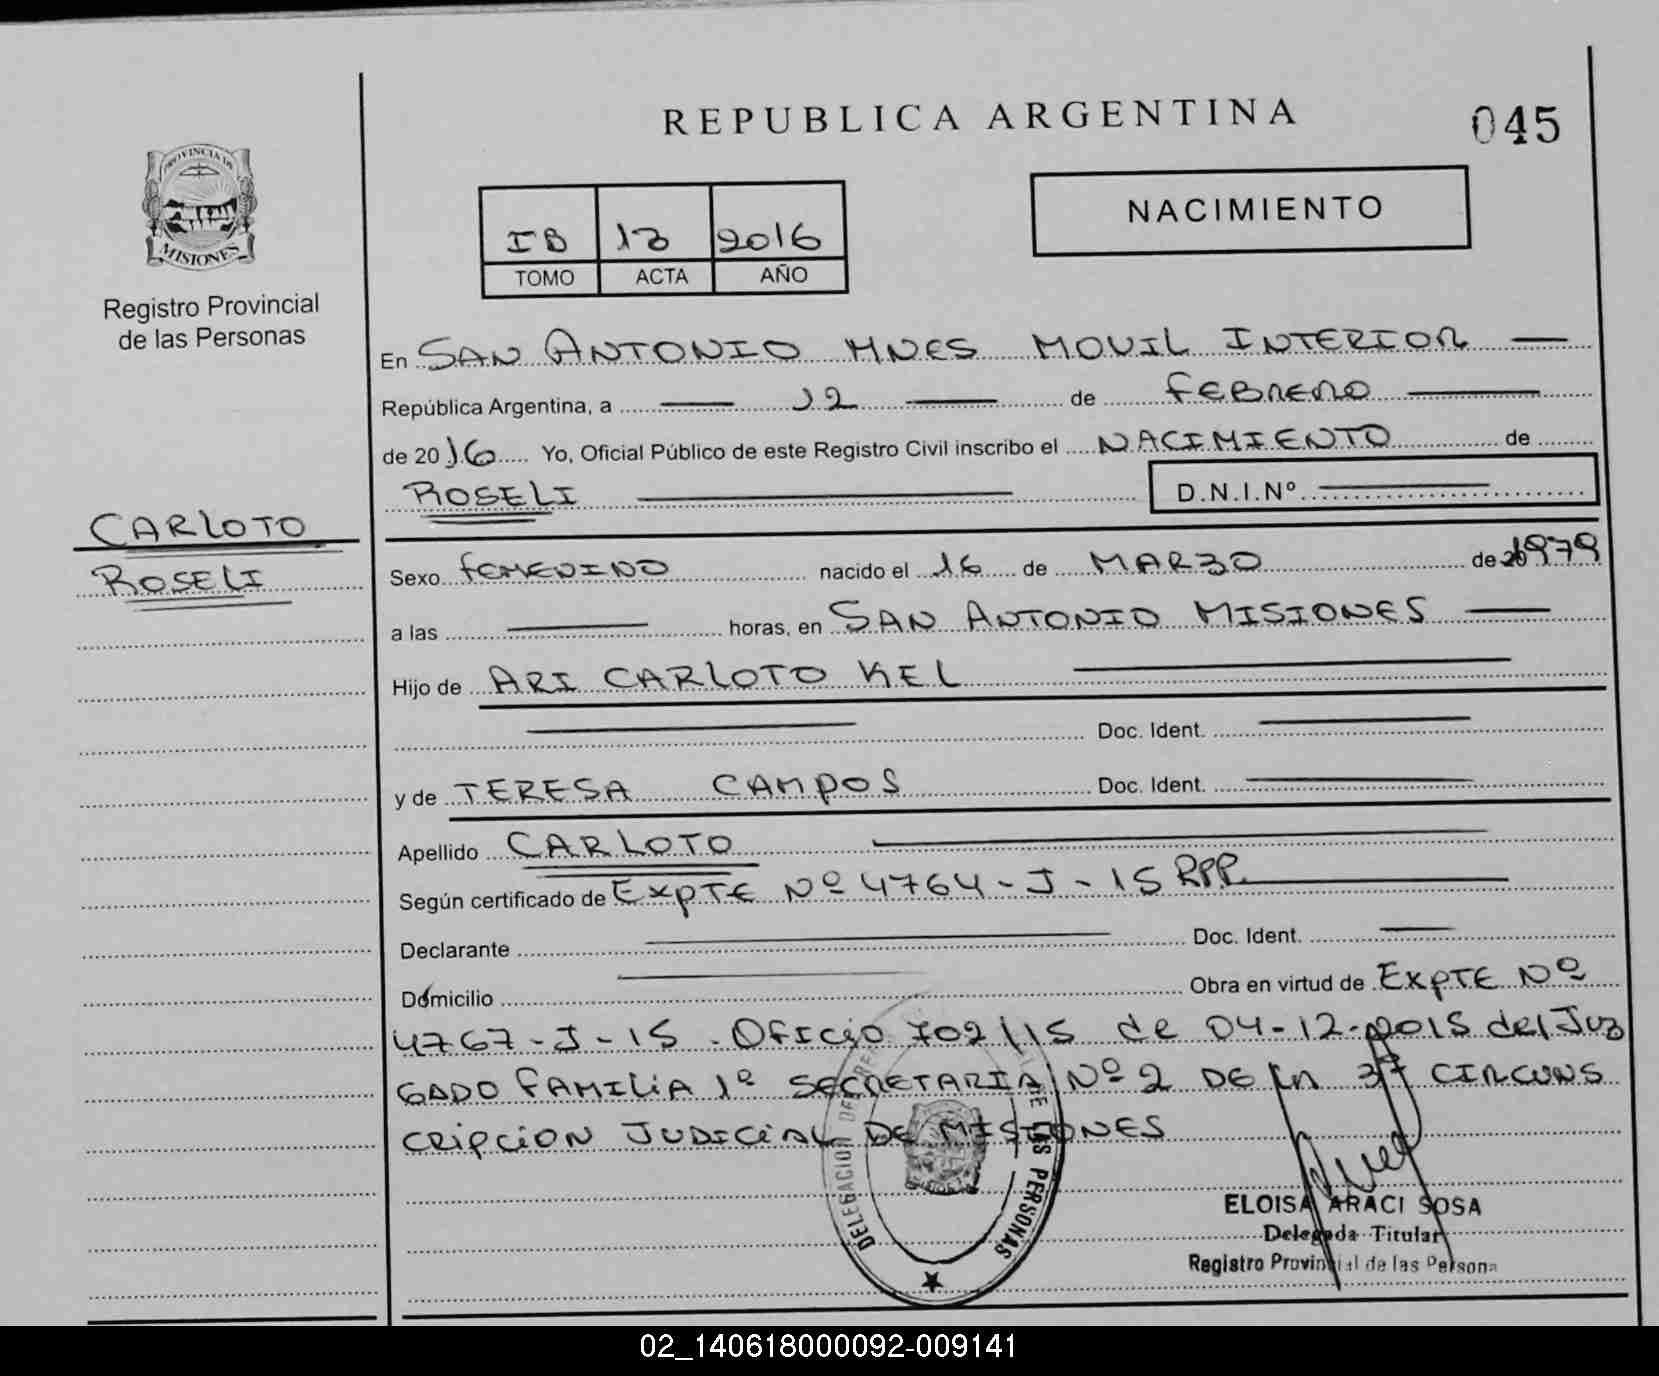 REPUBLICA ARGENTINA
045
PROVINCIA DE
MISIONES
Registro Provincial
de las Personas
NACIMIENTO
IB 13 2016
TOMO ACTA AÑO
En SAN ANTONIO MNES MOVIL INTERIOR
República Argentina, a 12 de FEBRERO
de 2016 Yo, Oficial Público de este Registro Civil inscribo el NACIMIENTO de
ROSELI D.N.I.Nº
CARLOTO
ROSELI
Sexo FEMENINO nacido el 16 de MARZO de 1979
a las horas, en SAN ANTONIO MISIONES
Hijo de ARI CARLOTO KEL
Doc. Ident.
y de TERESA CAMPOS Doc. Ident.
Apellido CARLOTO
Según certificado de EXPTE Nº 4764-J-15 RPP.
Declarante Doc. Ident.
Domicilio Obra en virtud de EXPTE Nº
4767-J-15. OFICIO 702/15 de 04-12-2015 del Juz
GADO FAMILIA 1º SECRETARIA Nº 2 DE LA 3ª CIRCUNS
CRIPCION JUDICIAL DE MISIONES
DELEGACION DE LAS PERSONAS
ELOISA ARACI SOSA
Delegada Titular
Registro Provincial de las Persona
02_140618000092-009141